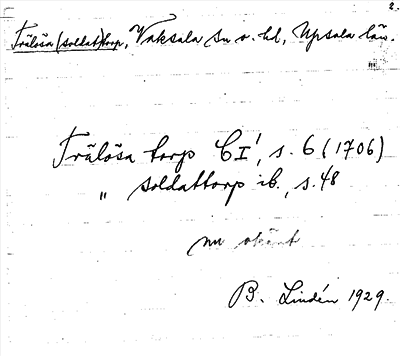 2.
Frälösa (soldat)torp, Vaksala sn o. hd, Upsala län.
Frälösa torp CI', s. 6 (1706)
" soldattorp ib., s. 48
nu okänt
B. Lindén 1929.